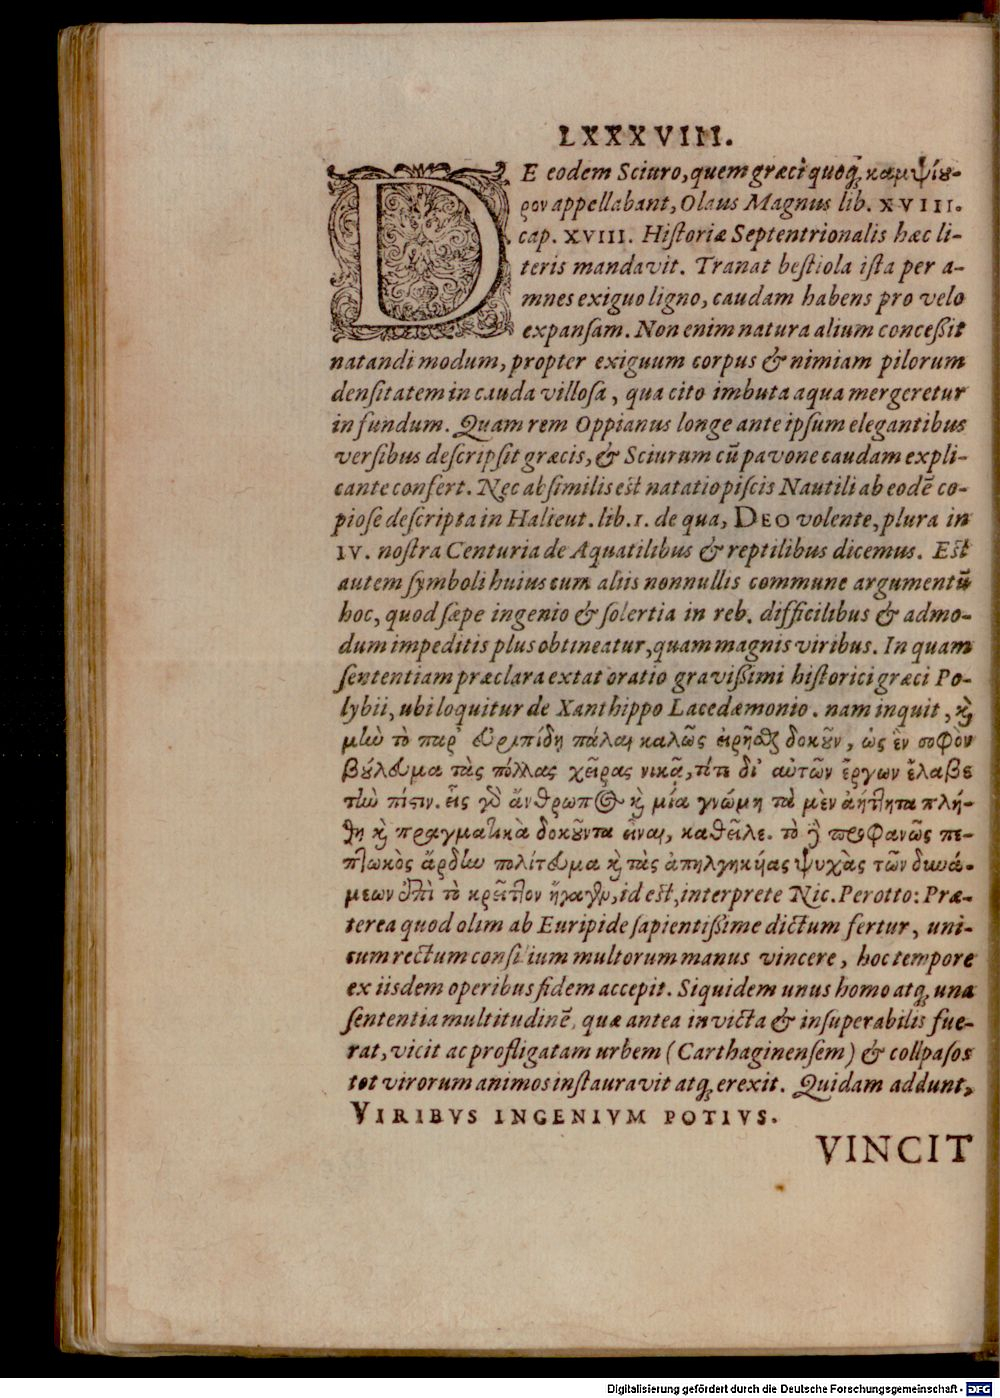 LXXXVIII.
DE eodem Sciuro, quem græci quoq; καμψίου-
ρον appellabant, Olaus Magnus lib. XVIII.
cap. XVIII. Historiæ Septentrionalis hæc li-
teris mandavit. Tranat bestiola ista per a-
mnes exiguo ligno, caudam habens pro velo
expansam. Non enim natura alium concessit
natandi modum, propter exiguum corpus & nimiam pilorum
densitatem in cauda villosa, qua cito imbuta aqua mergeretur
in fundum. Quam rem Oppianus longe ante ipsum elegantibus
versibus descripsit græcis, & Sciurum cū pavone caudam expli-
cante confert. Nec absimilis est natatio piscis Nautili ab eodē co-
piose descripta in Halieut. lib. 1. de qua, DEO volente, plura in
IV. nostra Centuria de Aquatilibus & reptilibus dicemus. Est
autem symboli huius cum aliis nonnullis commune argumentū
hoc, quod sæpe ingenio & solertia in reb. difficilibus & admo-
dum impeditis plus obtineatur, quam magnis viribus. In quam
sententiam præclara extat oratio gravissimi historici græci Po-
lybii, ubi loquitur de Xanthippo Lacedæmonio. nam inquit, καὶ
μὴν τὸ παρ' Εὐριπίδῃ πάλαι καλῶς εἰρῆσθαι δοκοῦν, ὡς ἓν σοφὸν
βούλευμα τὰς πόλλας χεῖρας νικᾷ, τότε δι' αὐτῶν ἔργων ἔλαβε
τὴν πίστιν. εἷς γὸ ἄνθρωπος καὶ μία γνώμη τὰ μὲν ἀήττητα πλή-
θη καὶ πραγματικὰ δοκοῦντα εἶναι, καθεῖλε. τὸ δὲ προφανῶς πε-
πτωκὸς ἄρδην πολίτευμα καὶ τὰς ἀπηλγηκυίας ψυχὰς τῶν δυνά-
μεων ἐπὶ τὸ κρεῖττον ἤγαγεν, id est, interprete Nic. Perotto: Præ-
terea quod olim ab Euripide sapientissime dictum fertur, uni-
cum rectum consilium multorum manus vincere, hoc tempore
ex iisdem operibus fidem accepit. Siquidem unus homo atq; una
sententia multitudinē, quæ antea invicta & insuperabilis fue-
rat, vicit ac profligatam urbem (Carthaginensem) & collpasos
tot virorum animos instauravit atq; erexit. Quidam addunt,
VIRIBVS INGENIVM POTIVS.
VINCIT
Digitalisierung gefördert durch die Deutsche Forschungsgemeinschaft - DFG